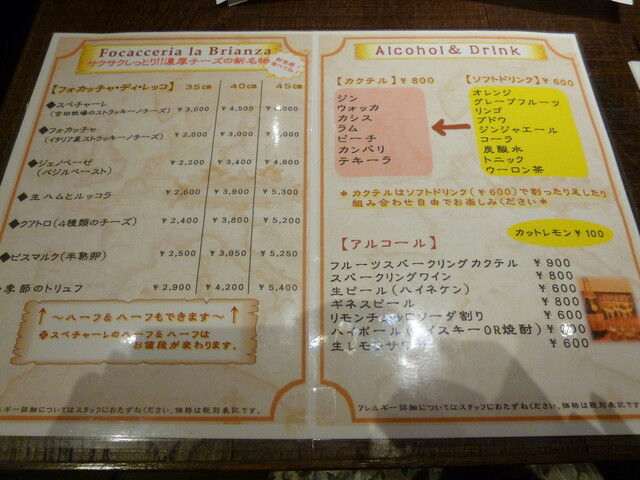 Focacceria la Brianza
サクサクしっとり!!濃厚チーズの新名物
【フォカッチャ・ディ・レッコ】 35cm 40cm 45cm
◆スペチャーレ ¥3,000 ¥4,500 ,000
(吉田牧場のストラッキーノチーズ)
◆フォカッチャ ¥2,000 ¥3,000 ,000
(イタリア産ストラッキーノチーズ)
◆ジェノベーゼ ¥2,200 ¥3,400 ¥4,600
(バジルペースト)
◆生ハムとルッコラ ¥2,600 ¥3,900 ¥5,300
◆クアトロ(4種類のチーズ) ¥2,400 ¥3,800 ¥5,200
◆ビスマルク(半熟卵) ¥2,500 ¥3,950 ¥5,250
季節のトリュフ ¥2,900 ¥4,200 ¥5,400
↑ ～ハーフ&ハーフもできます～ ↑
スペチャーレのハーフ&ハーフは
お値段が変わります。
アレルギー詳細についてはスタッフにおたずねください。価格は税別表記です。
Alcohol & Drink
【カクテル】¥800
ジン
ウォッカ
カシス
ラム
ピーチ
カンパリ
テキーラ
【ソフトドリンク】¥600
オレンジ
グレープフルーツ
リンゴ
ブドウ
ジンジャエール
コーラ
炭酸水
トニック
ウーロン茶
*カクテルはソフトドリンク(¥600)で割ったり足したり
組み合わせ自由でお楽しみください*
カットレモン¥100
【アルコール】
フルーツスパークリングカクテル ¥900
スパークリングワイン ¥800
生ビール(ハイネケン) ¥600
ギネスビール ¥800
リモンチェッロソーダ割り ¥600
ハイボール(ウイスキーOR焼酎)
生レモンサワー ¥600
アレルギー詳細についてはスタッフにおたずねください。価格は税別表記です。